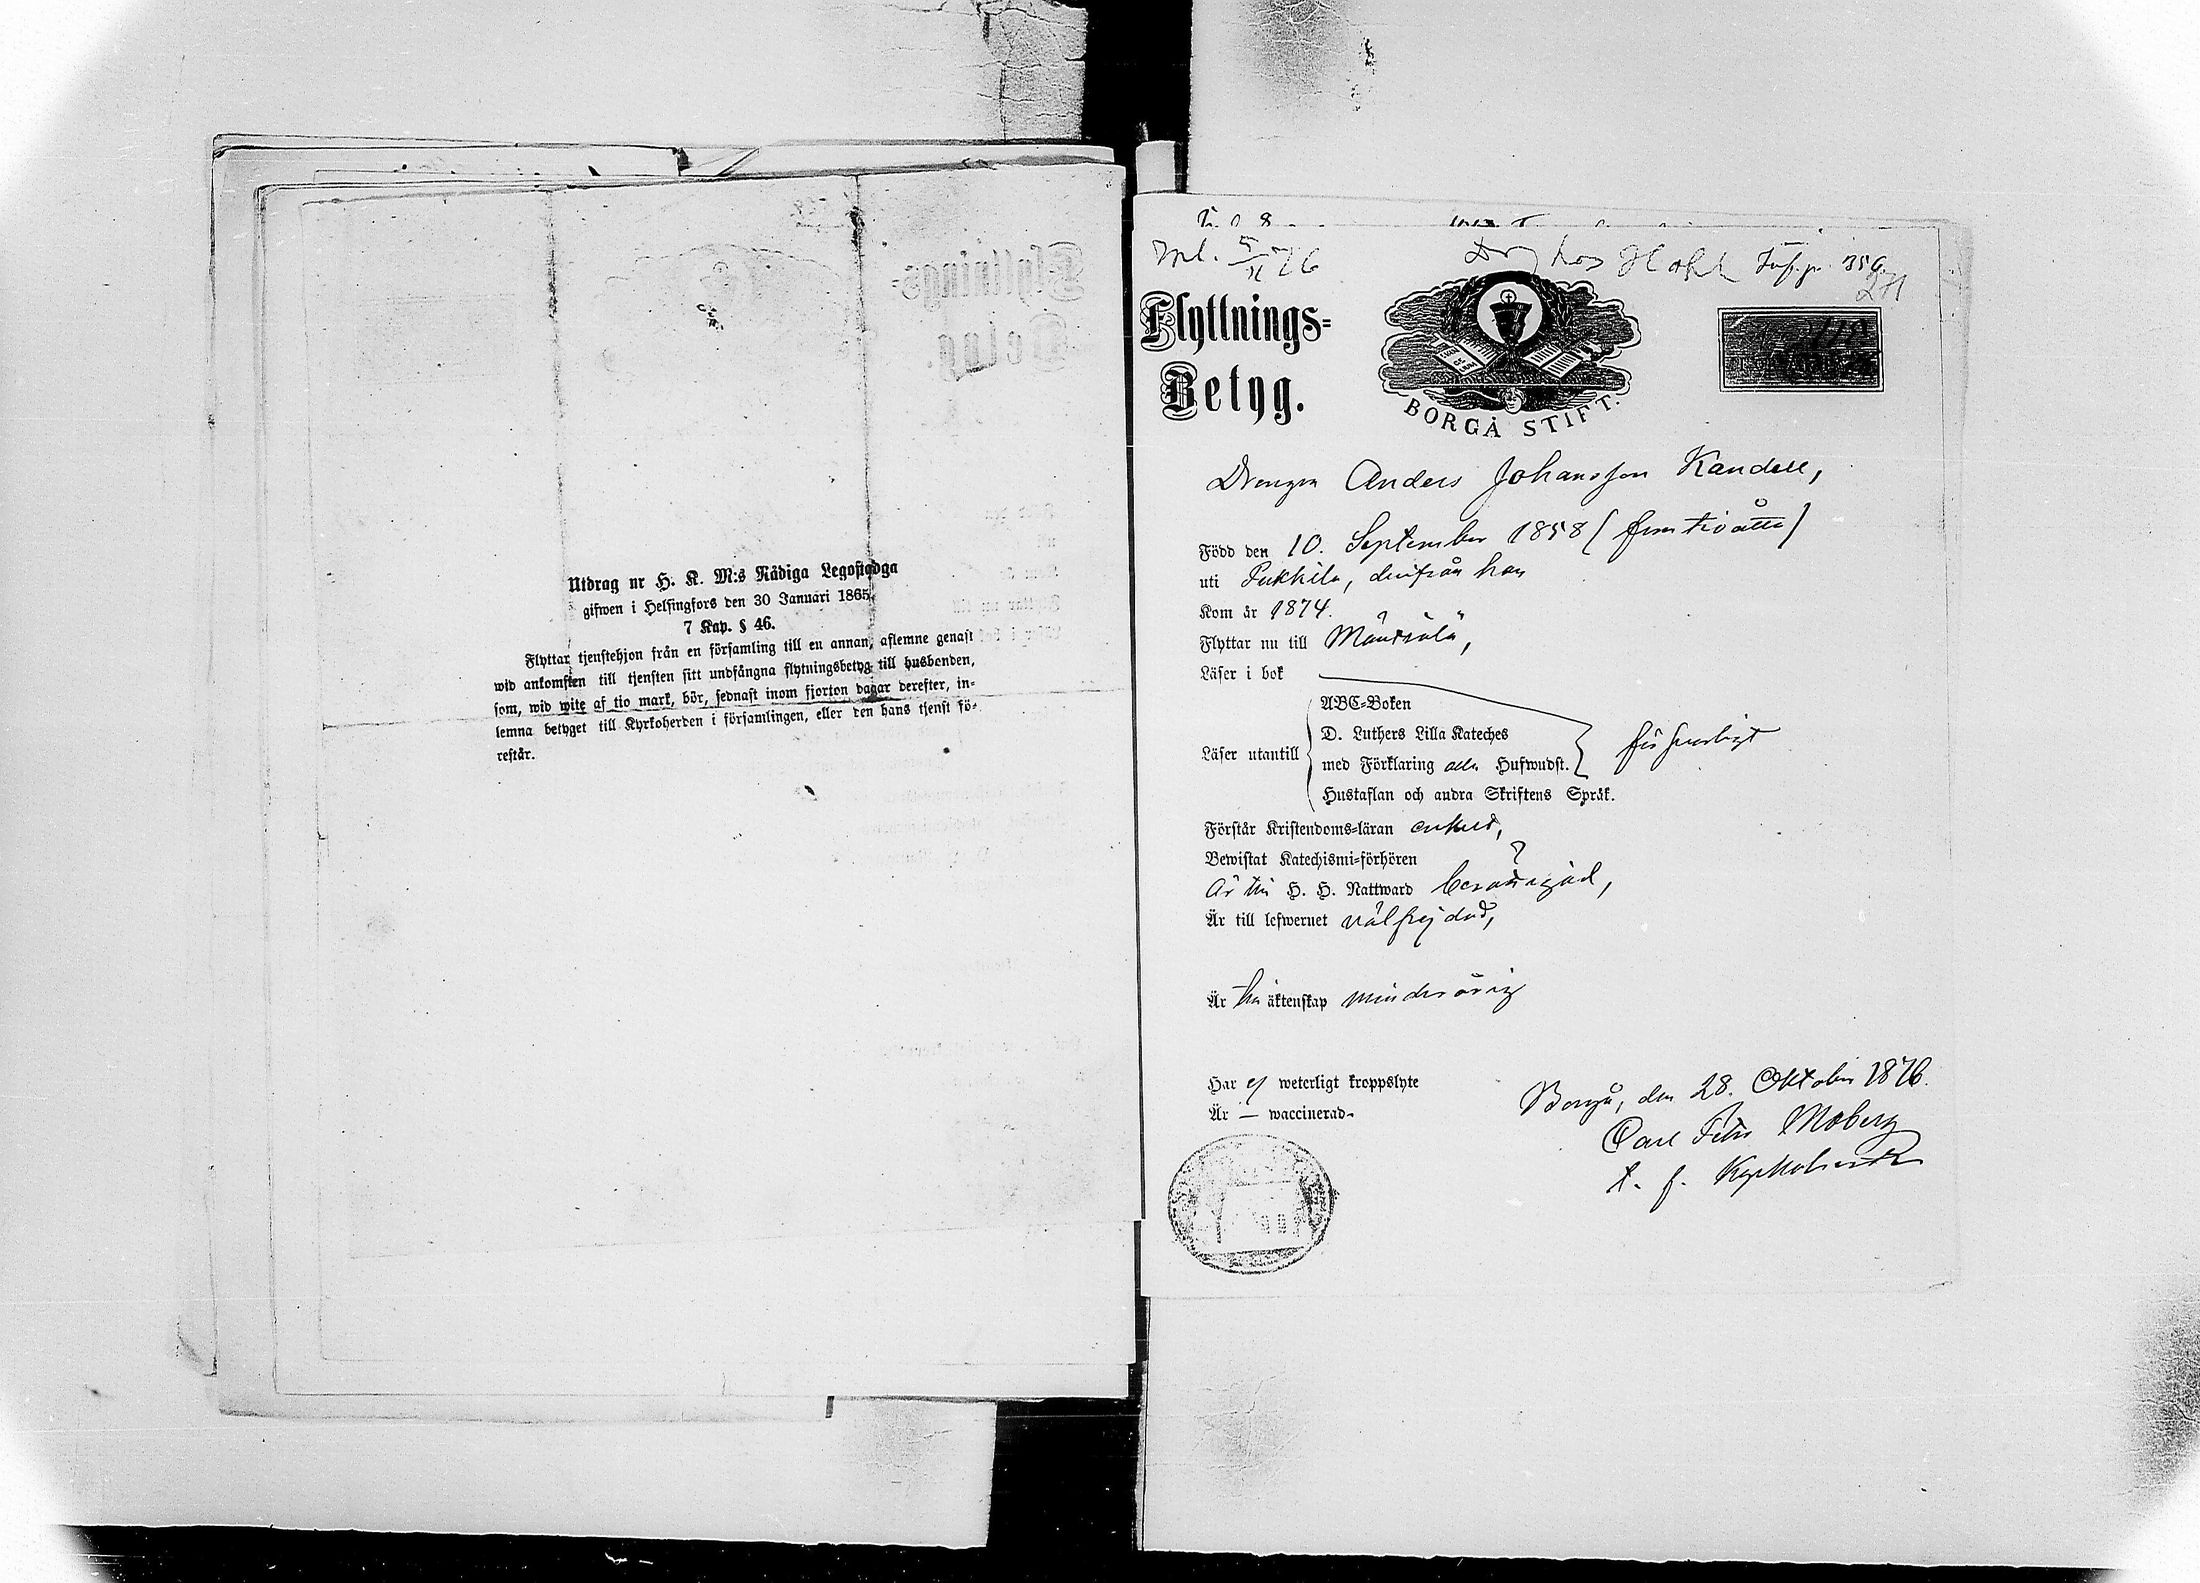 Utdrag ur H. K. M:s Nådiga Legostadga
gifwen i Helsingfors den 30 Januari 1865.
7 Kap. § 46.
Flyttar tjenstehjon från en församling till en annan, aflemne genast
wid ankomsten till tjensten sitt undfångna flytningsbetyg till husbonden,
som, wid wite af tio mark, bör, sednast inom fjorton dagar derefter, in-
lemna betyget till Kyrkoherden i församlingen, eller den hans tjenst fö-
restår.
Inl. 5/11 76
Flyttnings-
Betyg.
BORGÅ STIFT.
Drengen Anders Johansson Kandell,
Född den 10. September 1858 (femtioåtta)
uti Pukkila, derifrån han
Kom år 1874.
Flyttar nu till Mäntsälä,
Läser i bok
ABC-Boken
D. Luthers Lilla Kateches
Läser utantill med Förklaring alla Hufwudst. försvarligt
Hustaflan och andra Skriftens Språk.
Förstår Kristendoms-läran enkelt,
Bewistat Katechismi-förhören ?
Är till H. H. Nattward berättigad,
Är till lefwernet välfrejdad,
Är till äktenskap minderårig
Har ej weterligt kroppslyte
Är — waccinerad.
Borgå, den 28. Oktober 1876.
Carl Petter Moberg
t. f. Kyrkoherde